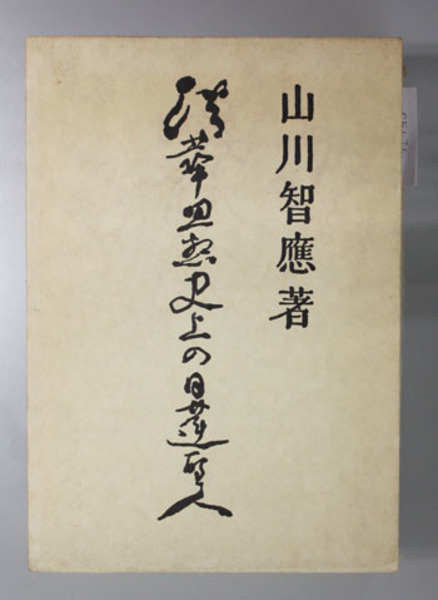 山川智應著
法華思想史上の日蓮聖人